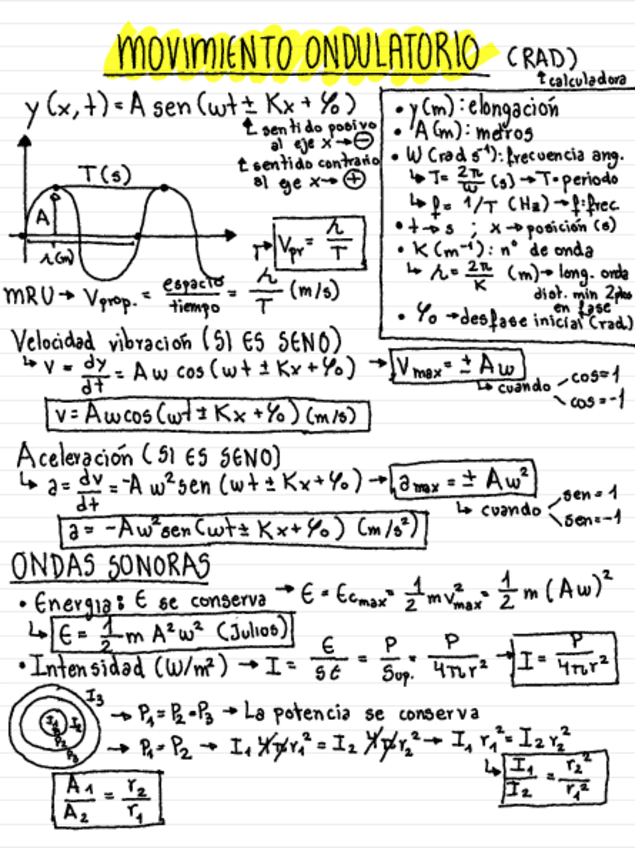 MOVIMIENTO ONDULATORIO (RAD)
↑ calculadora
y(x,t) = A sen (wt ± Kx + φ₀)
↳ sentido posivo
al eje x → ⊖
↳ sentido contrario
al eje x → ⊕
T(s)
A
λ(m)
Vpr = λ/T
MRU → Vprop. = espacio/tiempo = λ/T (m/s)
• y(m): elongación
• A(m): metros
• W(rad s⁻¹): frecuencia ang.
↳ T = 2π/w (s) → T = periodo
↳ f = 1/T (Hz) → f: frec.
• t → s ; x → posición (s)
• K(m⁻¹): nº de onda
↳ λ = 2π/K (m) → long. onda
dist. min 2 ptos
en fase
• φ₀ → desfase inicial (rad.)
Velocidad vibración (SI ES SENO)
↳ v = dy/dt = A w cos (wt ± Kx + φ₀) → Vmax = ± Aw
↳ cuando cos=1
cos=-1
v = A w cos (wt ± Kx + φ₀) (m/s)
Aceleración (SI ES SENO)
↳ a = dv/dt = -A w² sen (wt ± Kx + φ₀) → amax = ± Aw²
↳ cuando sen=1
sen=-1
a = -Aw² sen (wt ± Kx + φ₀) (m/s²)
ONDAS SONORAS
• Energía: E se conserva → E = Ecmax = 1/2 m v²max = 1/2 m (Aw)²
↳ E = 1/2 m A² w² (Julios)
• Intensidad (W/m²) → I = E/St = P/Sup. = P/4πr² → I = P/4πr²
I₁ I₂ I₃
P₁ P₂ P₃
→ P₁ = P₂ = P₃ → La potencia se conserva
→ P₁ = P₂ → I₁ 4π r₁² = I₂ 4π r₂² → I₁ r₁² = I₂ r₂²
↳ I₁/I₂ = r₂²/r₁²
A₁/A₂ = r₂/r₁